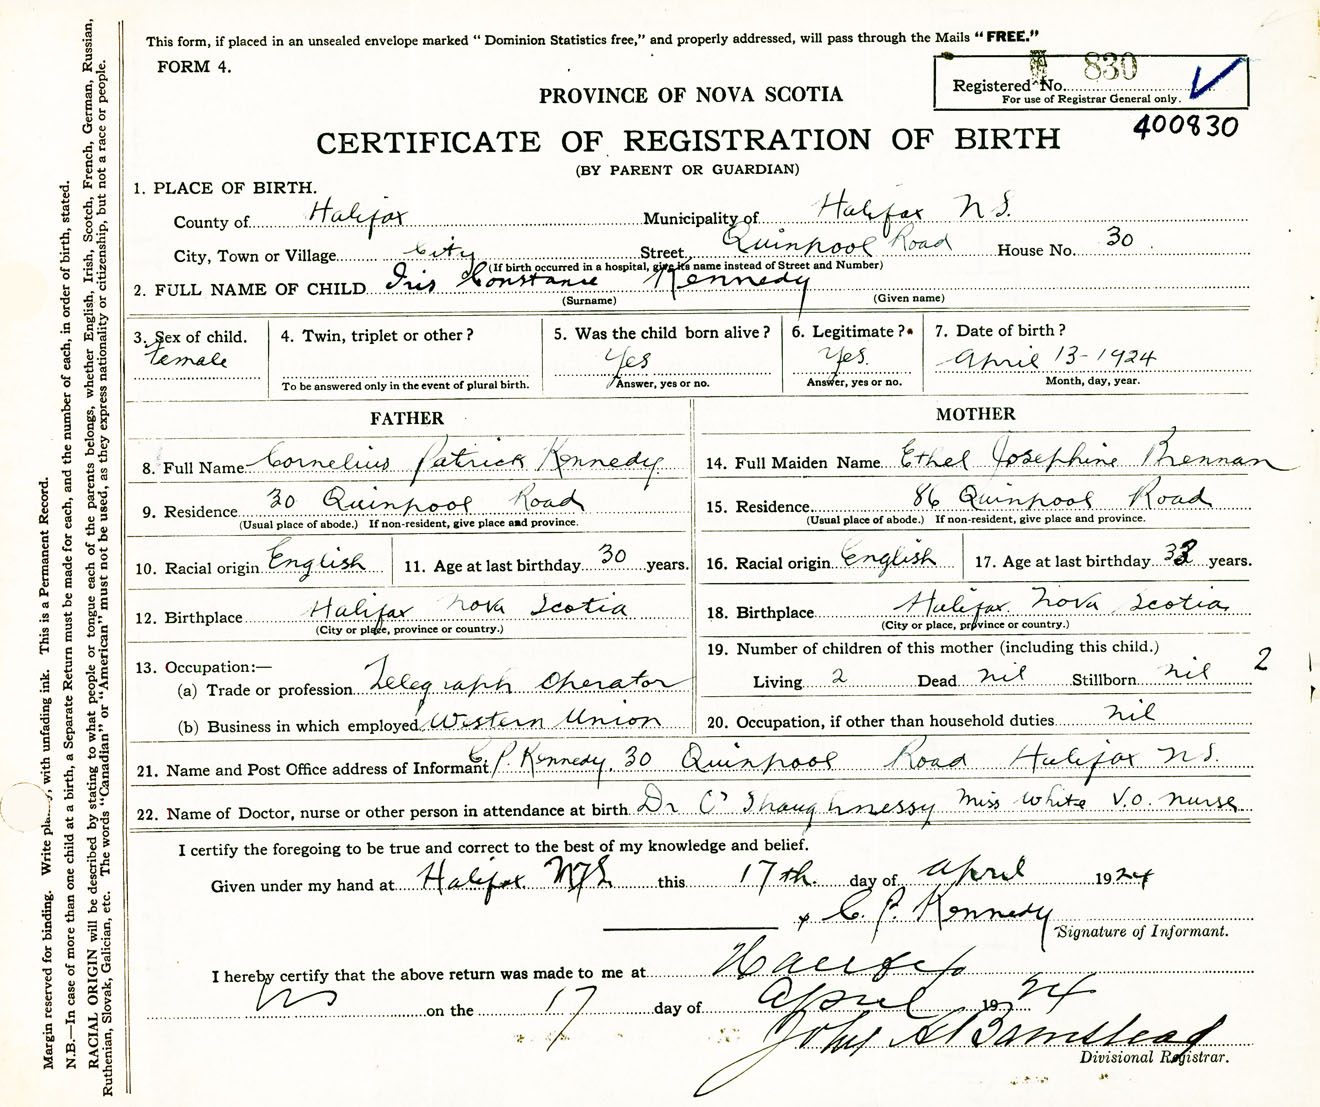 This form, if placed in an unsealed envelope marked " Dominion Statistics free," and properly addressed, will pass through the Mails "FREE."
FORM 4.
Registered No. 830
For use of Registrar General only.
400830
PROVINCE OF NOVA SCOTIA
CERTIFICATE OF REGISTRATION OF BIRTH
(BY PARENT OR GUARDIAN)
1. PLACE OF BIRTH.
County of Halifax Municipality of Halifax N.S.
City, Town or Village City Street Quinpool Road House No. 30
(If birth occurred in a hospital, give its name instead of Street and Number)
2. FULL NAME OF CHILD Iris Constance Kennedy
(Surname) (Given name)
3. Sex of child. female
4. Twin, triplet or other?
To be answered only in the event of plural birth.
5. Was the child born alive? Yes
Answer, yes or no.
6. Legitimate?* Yes.
Answer, yes or no.
7. Date of birth? April 13-1924
Month, day, year.
FATHER
8. Full Name Cornelius Patrick Kennedy
9. Residence 30 Quinpool Road
(Usual place of abode.) If non-resident, give place and province.
10. Racial origin English 11. Age at last birthday 30 years.
12. Birthplace Halifax Nova Scotia
(City or place, province or country.)
13. Occupation:—
(a) Trade or profession Telegraph Operator
(b) Business in which employed Western Union
MOTHER
14. Full Maiden Name Ethel Josephine Brennan
15. Residence 86 Quinpool Road
(Usual place of abode.) If non-resident, give place and province.
16. Racial origin English 17. Age at last birthday 33 years.
18. Birthplace Halifax Nova Scotia
(City or place, province or country.)
19. Number of children of this mother (including this child.)
Living 2 Dead nil Stillborn nil 2
20. Occupation, if other than household duties nil
21. Name and Post Office address of Informant C. P. Kennedy, 30 Quinpool Road Halifax N.S.
22. Name of Doctor, nurse or other person in attendance at birth Dr O'Shaughnessy Miss White V.O. nurse
I certify the foregoing to be true and correct to the best of my knowledge and belief.
Given under my hand at Halifax N.S. this 17th. day of April 1924
x C. P. Kennedy
Signature of Informant.
I hereby certify that the above return was made to me at Halifax
NS on the 17 day of April 1924
John A Barnstead
Divisional Registrar.
Margin reserved for binding. Write with unfading ink. This is a Permanent Record.
N.B.—In case of more than one child at a birth, a Separate Return must be made for each, and the number of each, in order of birth, stated.
RACIAL ORIGIN will be described by stating to what people or tongue each of the parents belongs, whether English, Irish, Scotch, French, German, Russian,
Ruthenian, Slovak, Galician, etc. The words "Canadian" or "American" must not be used, as they express nationality or citizenship, but not a race or people.